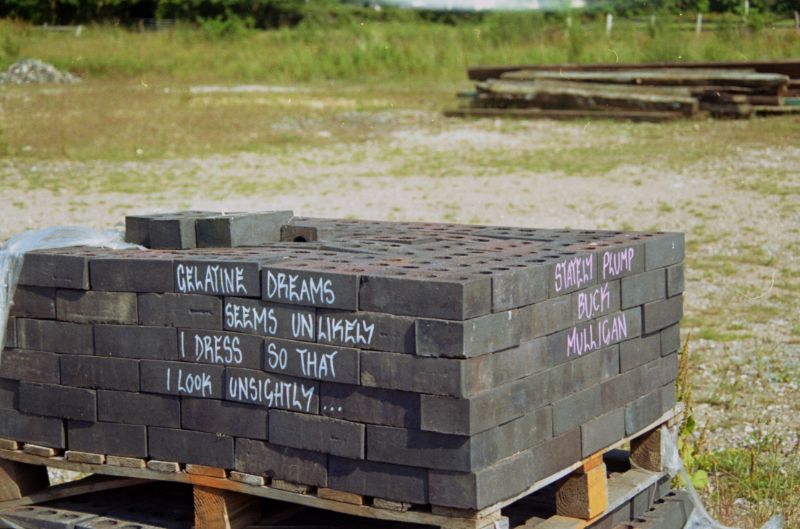 GELATINE DREAMS
SEEMS UNLIKELY
I DRESS SO THAT
I LOOK UNSIGHTLY...
STATELY PLUMP
BUCK
MULLIGAN